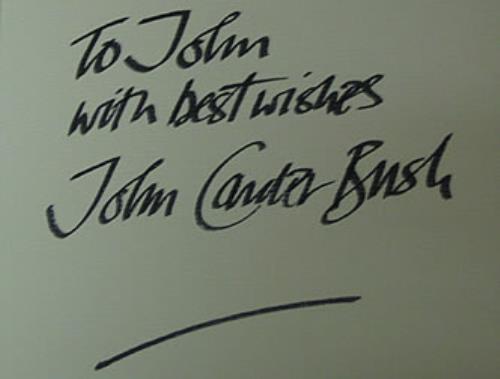 To John
with best wishes
John Carder Bush